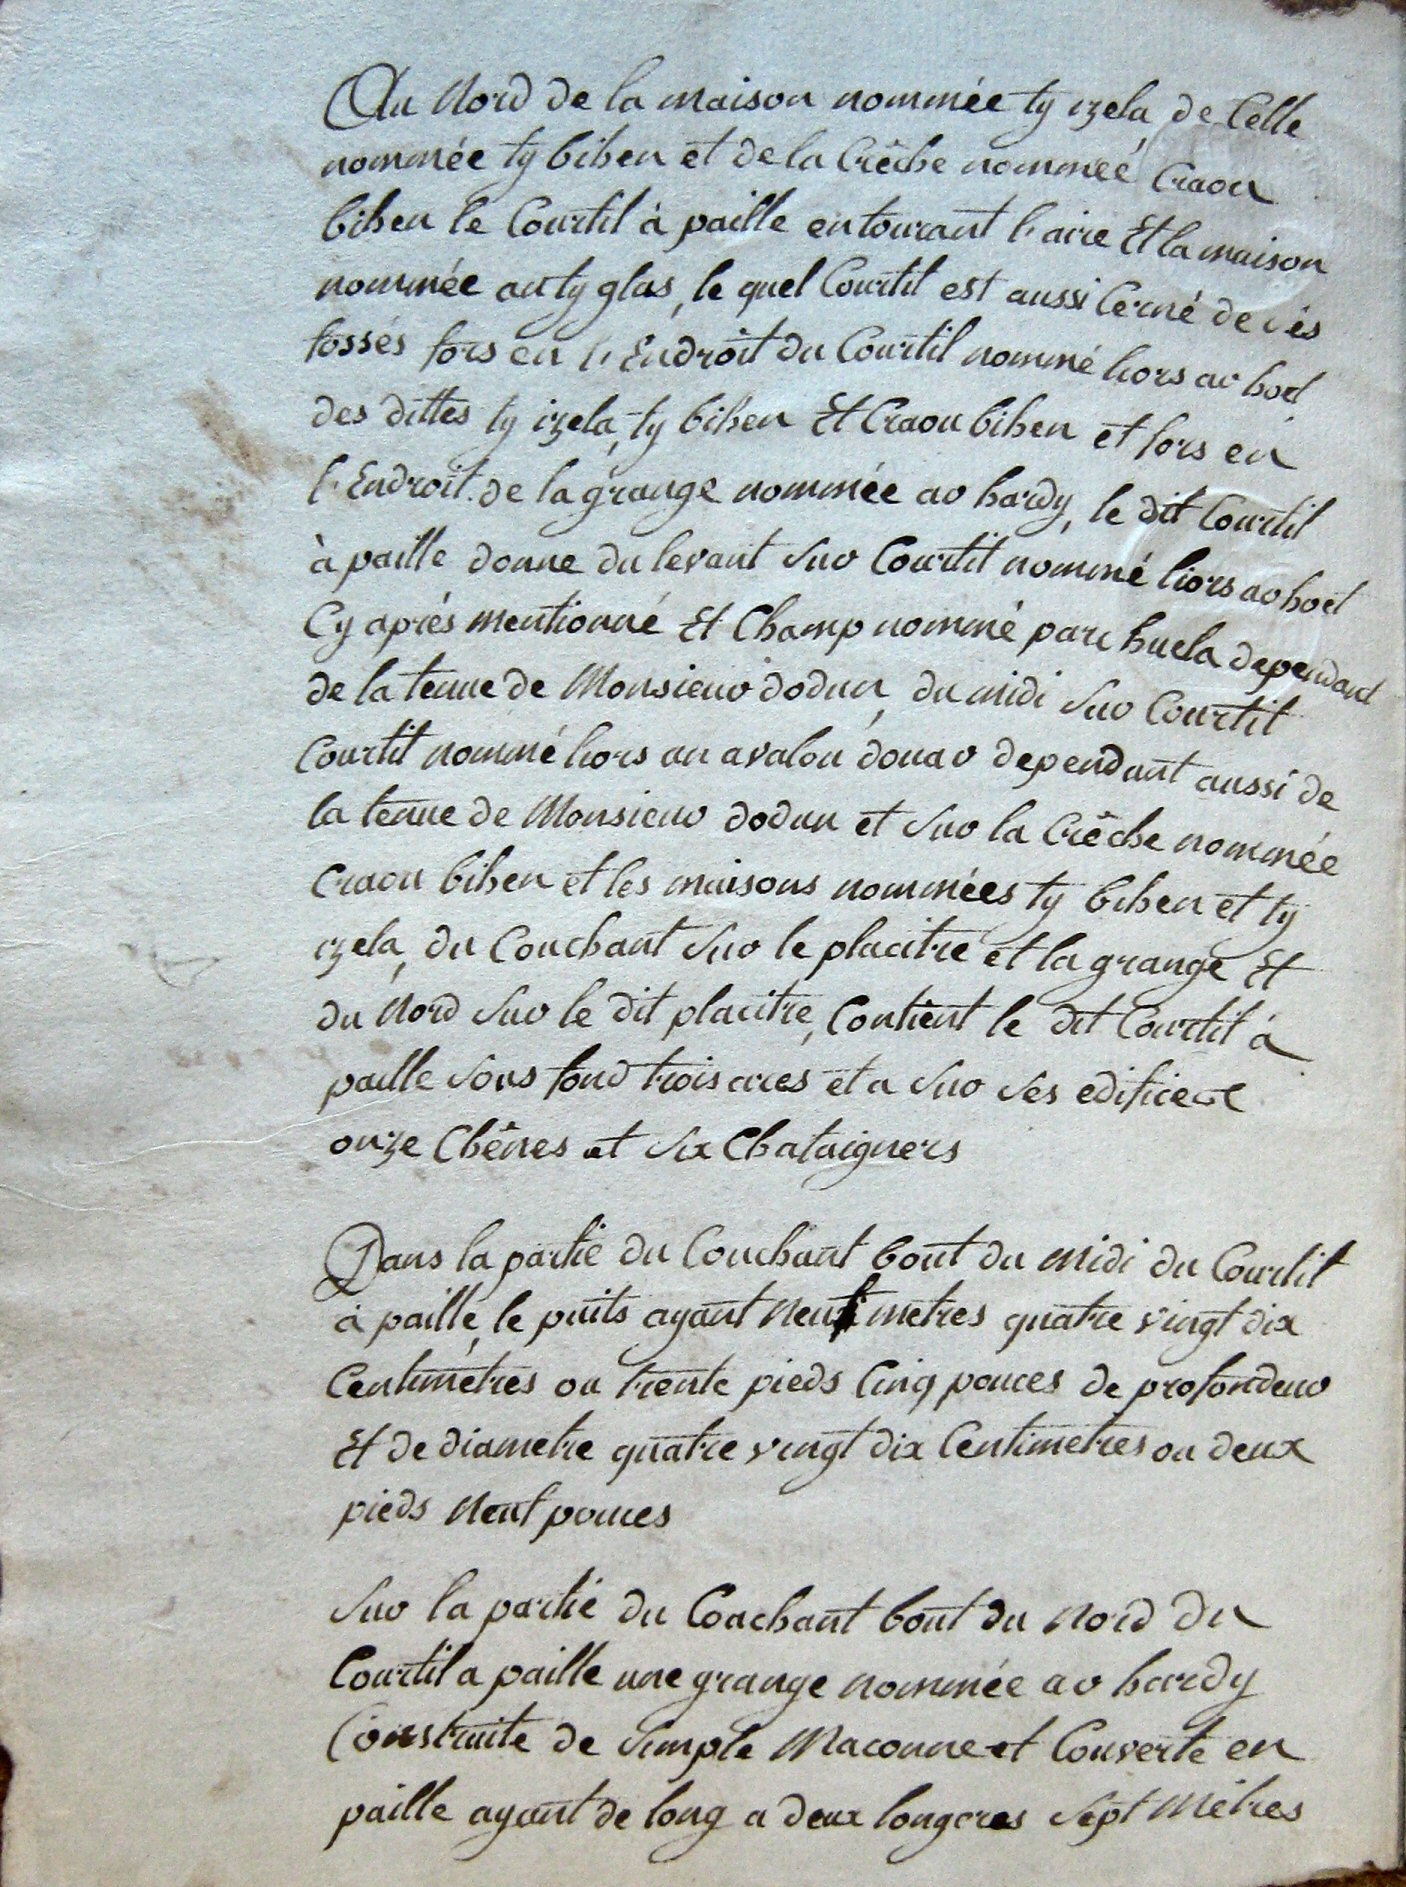 Au Nord de la maison nommée ty izela, de Celle
nommée ty bihen et de la Crêche nommée Craou
bihen le Courtil à paille entourant l'aire Et la maison
nommée an ty glas, le quel Courtil est aussi Cerné de ses
fossés fors en l'Endroit du Courtil nommé liors ar hoel
des dittes ty izela, ty bihen Et Craou bihen et fors en
l'Endroit de la grange nommée ar hardy, le dit Courtil
à paille donne du levant sur Courtil nommé liors ar hoel
Cy aprés mentionné Et Champ nommé parc huela dependant
de la tenue de Monsieur dodun, du midi sur Courtil
Courtil nommé liors an avalou douar dependant aussi de
la tenue de Monsieur dodun et sur la Crêche nommée
Craou bihen et les maisons nommées ty bihen et ty
izela, du Couchant sur le placitre et la grange Et
du Nord sur le dit placitre, Contient le dit Courtil à
paille sous fond trois ares et a sur ses edifices
onze Chênes et six Chataigners
Dans la partie du Couchant bout du Midi du Courtil
à paille, le puits ayant Neuf metres quatre vingt dix
Centimetres ou trente pieds Cinq pouces de profondeur
Et de diametre quatre vingt dix Centimetres ou deux
pieds Neuf pouces
Sur la partie du Couchant bout du Nord du
Courtil a paille une grange nommée ar hardy
Construite de simple Maconne et Couverte en
paille ayant de long a deux longeres sept Mètres